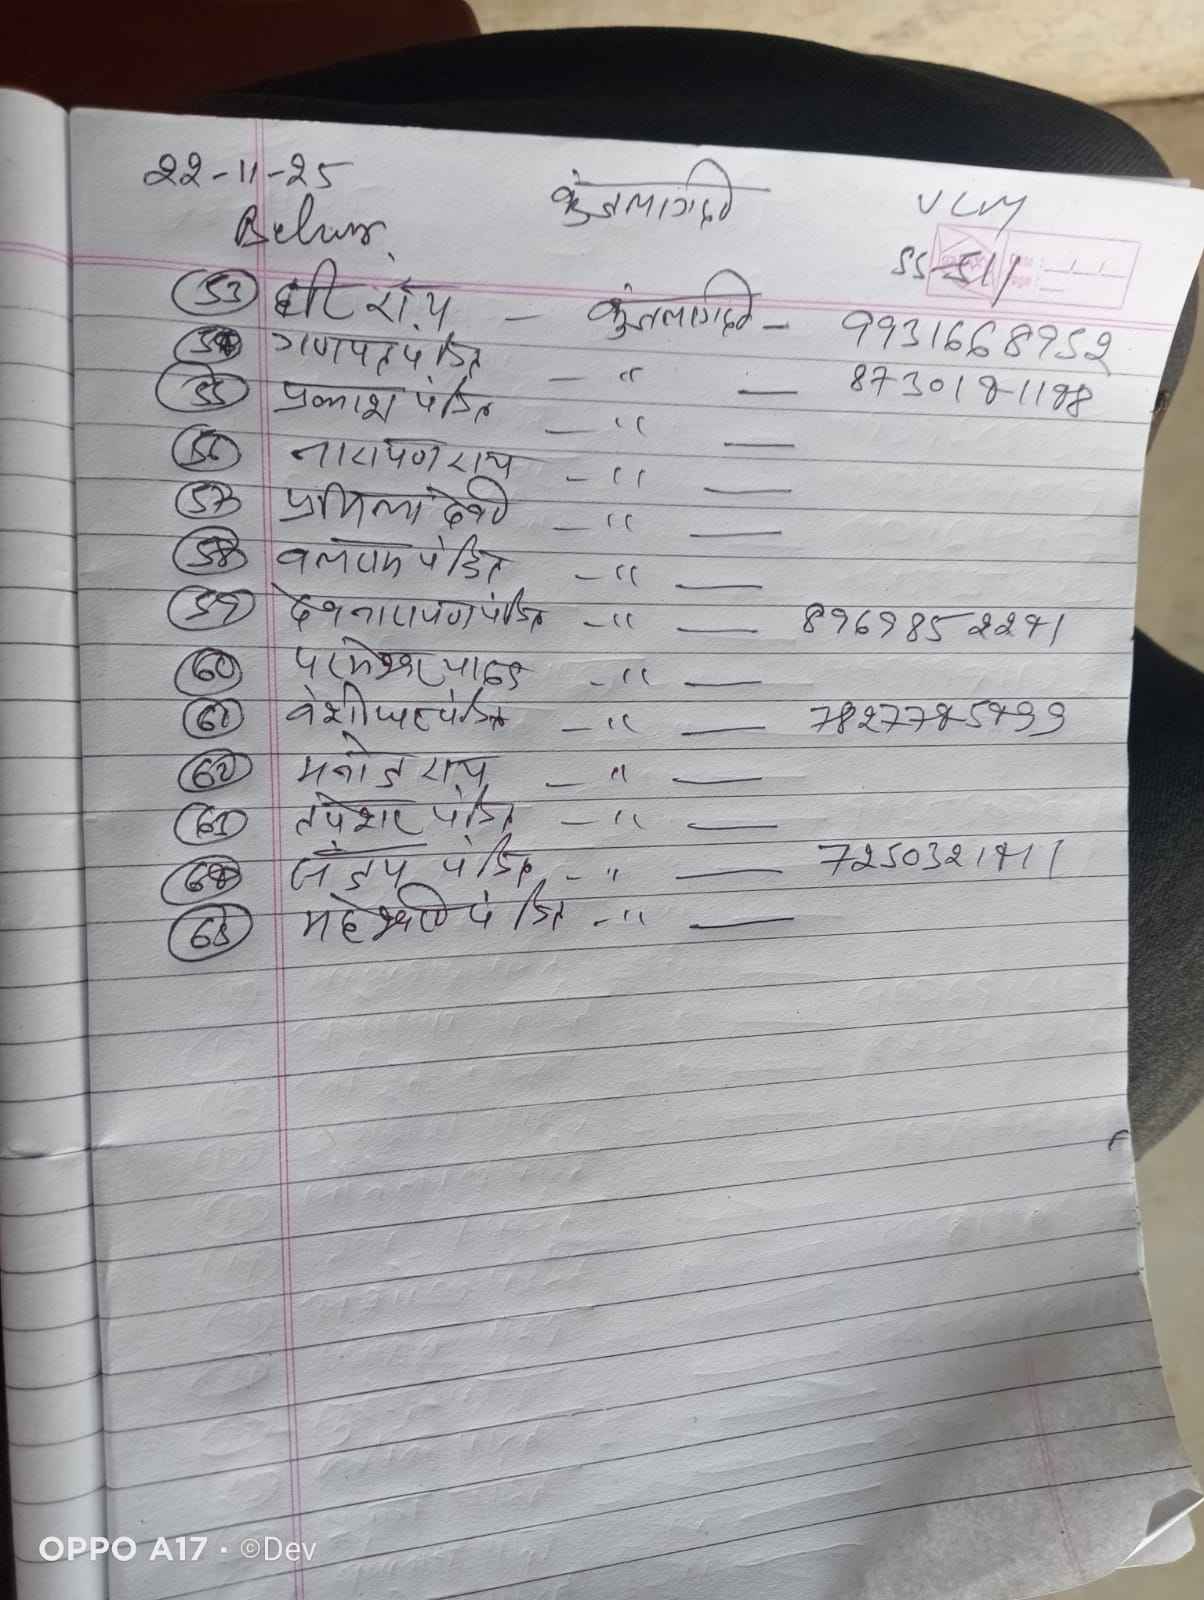 22-11-25 कुंजलागढी VLM
Belur SS-511
53 हरि राय - कुंजलागढी - 9931668952
54 गणपत पंडित - " — 8730181188
55 प्रकाश पंडित - " —
56 नारायण राय - " —
57 प्रमिला देवी - " —
58 बलराम पंडित - " —
59 देवनारायण पंडित - " — 8969852291
60 परमेश्वर यादव - " —
61 बंशीधर पंडित - " —
62 मनोज राय - " —
63 तपेशर पंडित - " —
64 पंडित - " — 7250321911
65 महेश्वरी पंडित - " —
OPPO A17 · ©Dev